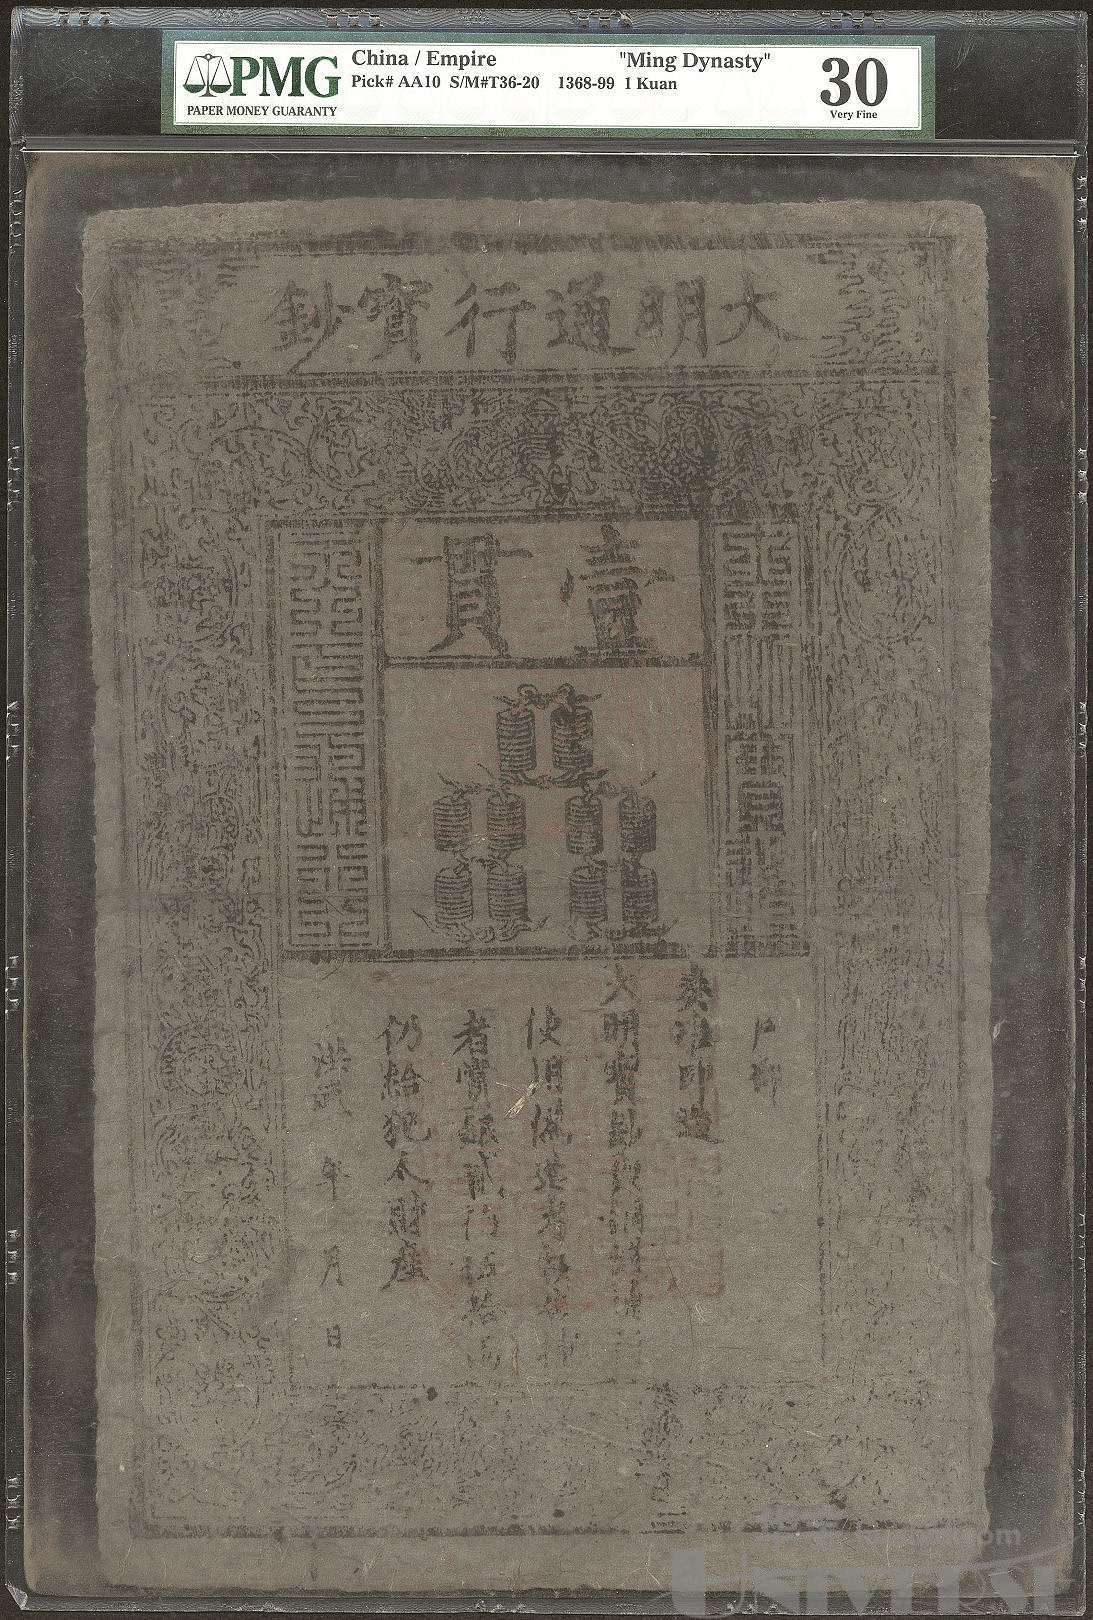 PMG
PAPER MONEY GUARANTY
China / Empire "Ming Dynasty"
Pick# AA10 S/M#T36-20 1368-99 1 Kuan
30
Very Fine
大明通行寶鈔
壹貫
戶部
奏准印造
大明寶鈔與
使用偽造者斬
者賞銀貳伯伍拾兩
仍給犯人財產
洪武 年 月 日